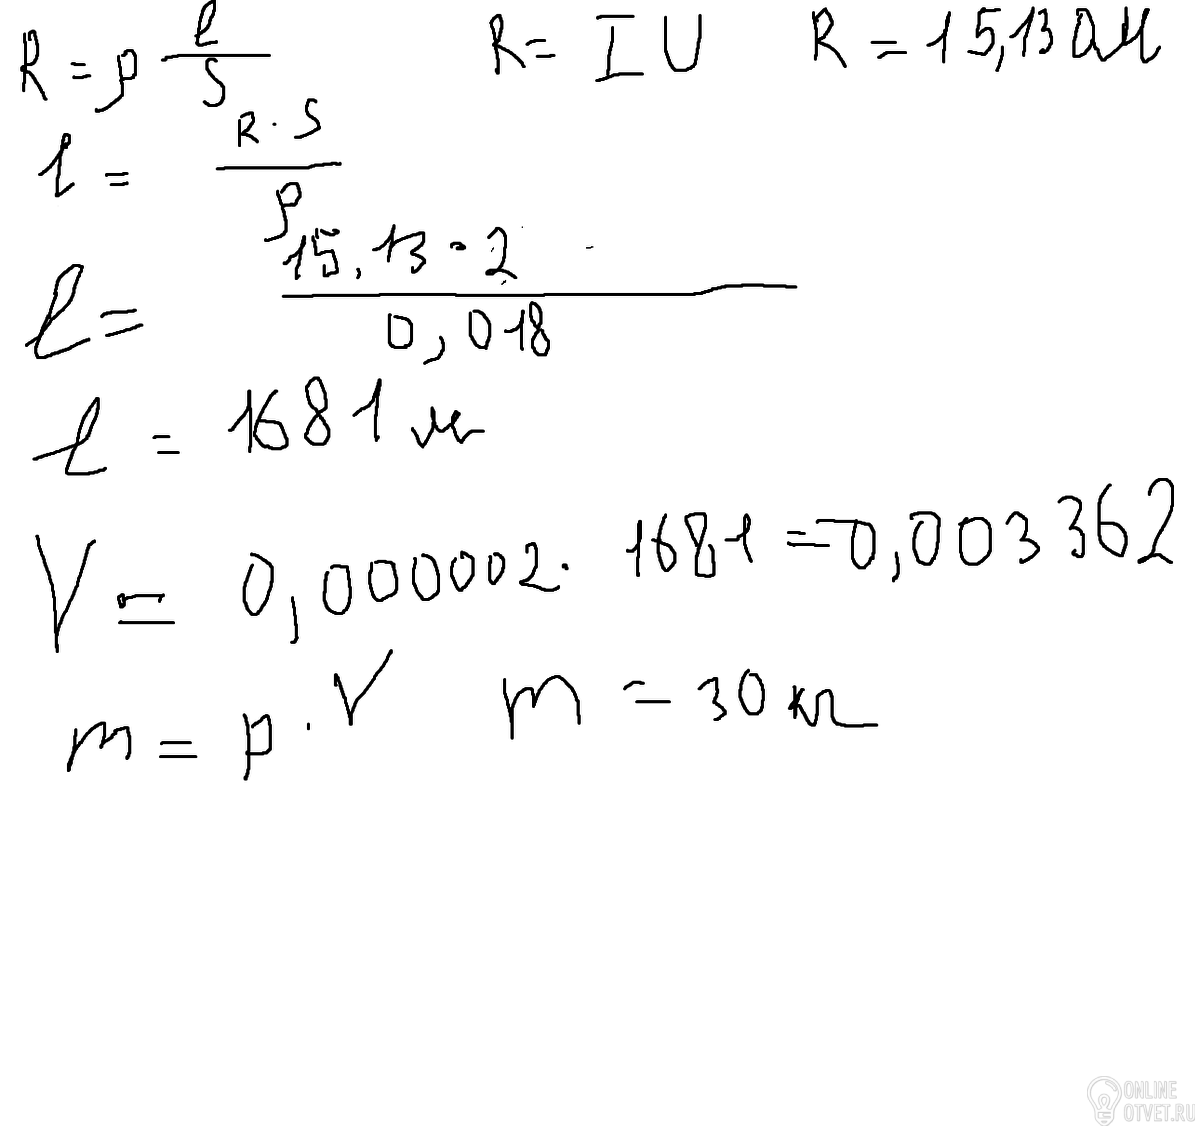 R = ρ l/S R = I U R = 15,13 Ом
l = R · S / ρ
l = 15,13 · 2 / 0,018
l = 1681 м
V = 0,000002 · 1681 = 0,003362
m = p · V m = 30 кг
ONLINE
OTVET.RU